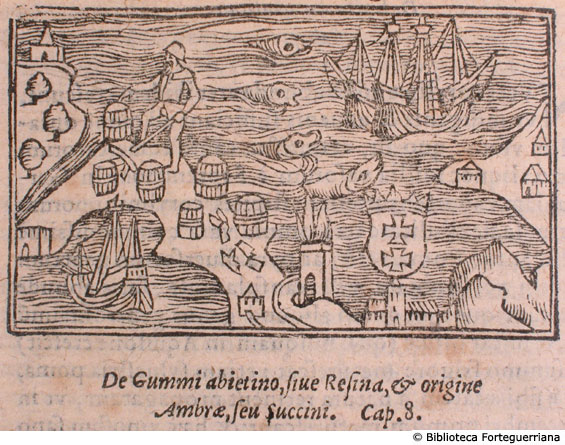 De Gummi abietino, siue Resina, & origine
Ambræ, seu Succini. Cap. 8.
© Biblioteca Forteguerriana